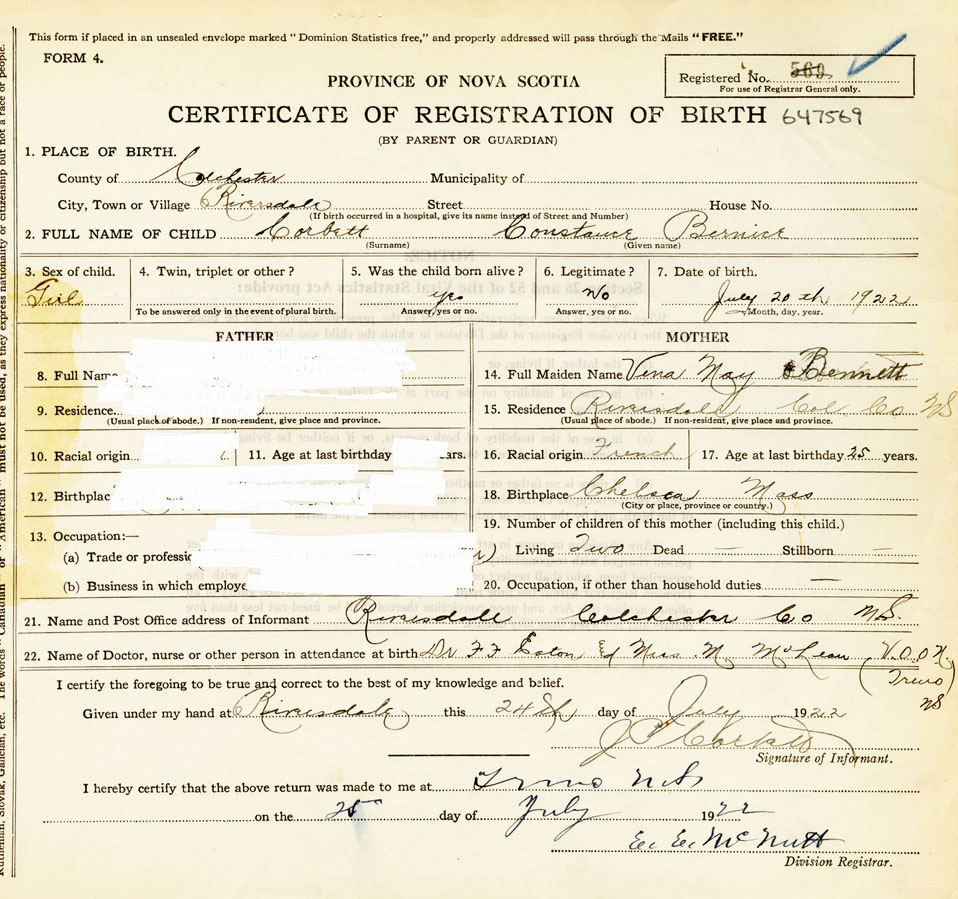 This form if placed in an unsealed envelope marked "Dominion Statistics free," and properly addressed will pass through the Mails "FREE."
FORM 4.
Registered No. 569
For use of Registrar General only.
PROVINCE OF NOVA SCOTIA
CERTIFICATE OF REGISTRATION OF BIRTH 647569
(BY PARENT OR GUARDIAN)
1. PLACE OF BIRTH.
County of Colchester Municipality of
City, Town or Village Riversdale Street House No.
(If birth occurred in a hospital, give its name instead of Street and Number)
2. FULL NAME OF CHILD Corbett Constance Bernice
(Surname) (Given name)
3. Sex of child. 4. Twin, triplet or other? 5. Was the child born alive? 6. Legitimate? 7. Date of birth.
Girl yes No July 20th 1922
To be answered only in the event of plural birth. Answer, yes or no. Answer, yes or no. Month, day, year.
FATHER
8. Full Name
9. Residence
(Usual place of abode.) If non-resident, give place and province.
10. Racial origin 11. Age at last birthday years.
12. Birthplac
13. Occupation:—
(a) Trade or professio
(b) Business in which employe
MOTHER
14. Full Maiden Name Vena May Bennett
15. Residence Riversdale Col Co NS
(Usual place of abode.) If non-resident, give place and province.
16. Racial origin French 17. Age at last birthday 25 years.
18. Birthplace Chelsea Mass
(City or place, province or country.)
19. Number of children of this mother (including this child.)
Living Two Dead — Stillborn —
20. Occupation, if other than household duties —
21. Name and Post Office address of Informant Riversdale Colchester Co NS.
22. Name of Doctor, nurse or other person in attendance at birth Dr F F Eaton Miss M McLean V.O.N.
(Truro NS
I certify the foregoing to be true and correct to the best of my knowledge and belief.
Given under my hand at Riversdale this 24th day of July 1922
Corbett
Signature of Informant.
I hereby certify that the above return was made to me at Truro N.S.
on the 25 day of July 1922
E. E. McNutt
Division Registrar.
Ruthenian, Slovak, Galician, etc. The words "Canadian" or "American" must not be used, as they express nationality or citizenship but not a race or people.